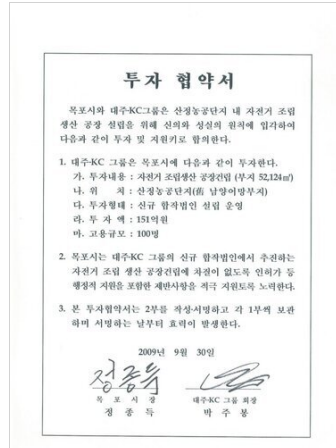 투자 협약서
목포시와 대주·KC그룹은 산정농공단지 내 자전거 조립
생산 공장 설립을 위해 신의와 성실의 원칙에 입각하여
다음과 같이 투자 및 지원키로 합의한다.
1. 대주·KC 그룹은 목포시에 다음과 같이 투자한다.
가. 투자내용 : 자전거 조립생산 공장건립 (부지 52,124㎡)
나. 위 치 : 산정농공단지(舊 남양어망부지)
다. 투자형태 : 신규 합작법인 설립 운영
라. 투 자 액 : 151억원
마. 고용규모 : 100명
2. 목포시는 대주·KC 그룹의 신규 합작법인에서 추진하는
자전거 조립 생산 공장건립에 차질이 없도록 인허가 등
행정적 지원을 포함한 제반사항을 적극 지원토록 노력한다.
3. 본 투자협약서는 2부를 작성·서명하고 각 1부씩 보관
하며 서명하는 날부터 효력이 발생한다.
2009년 9월 30일
정종득
목 포 시 장 대주·KC 그룹 회장
정 종 득 박 주 봉